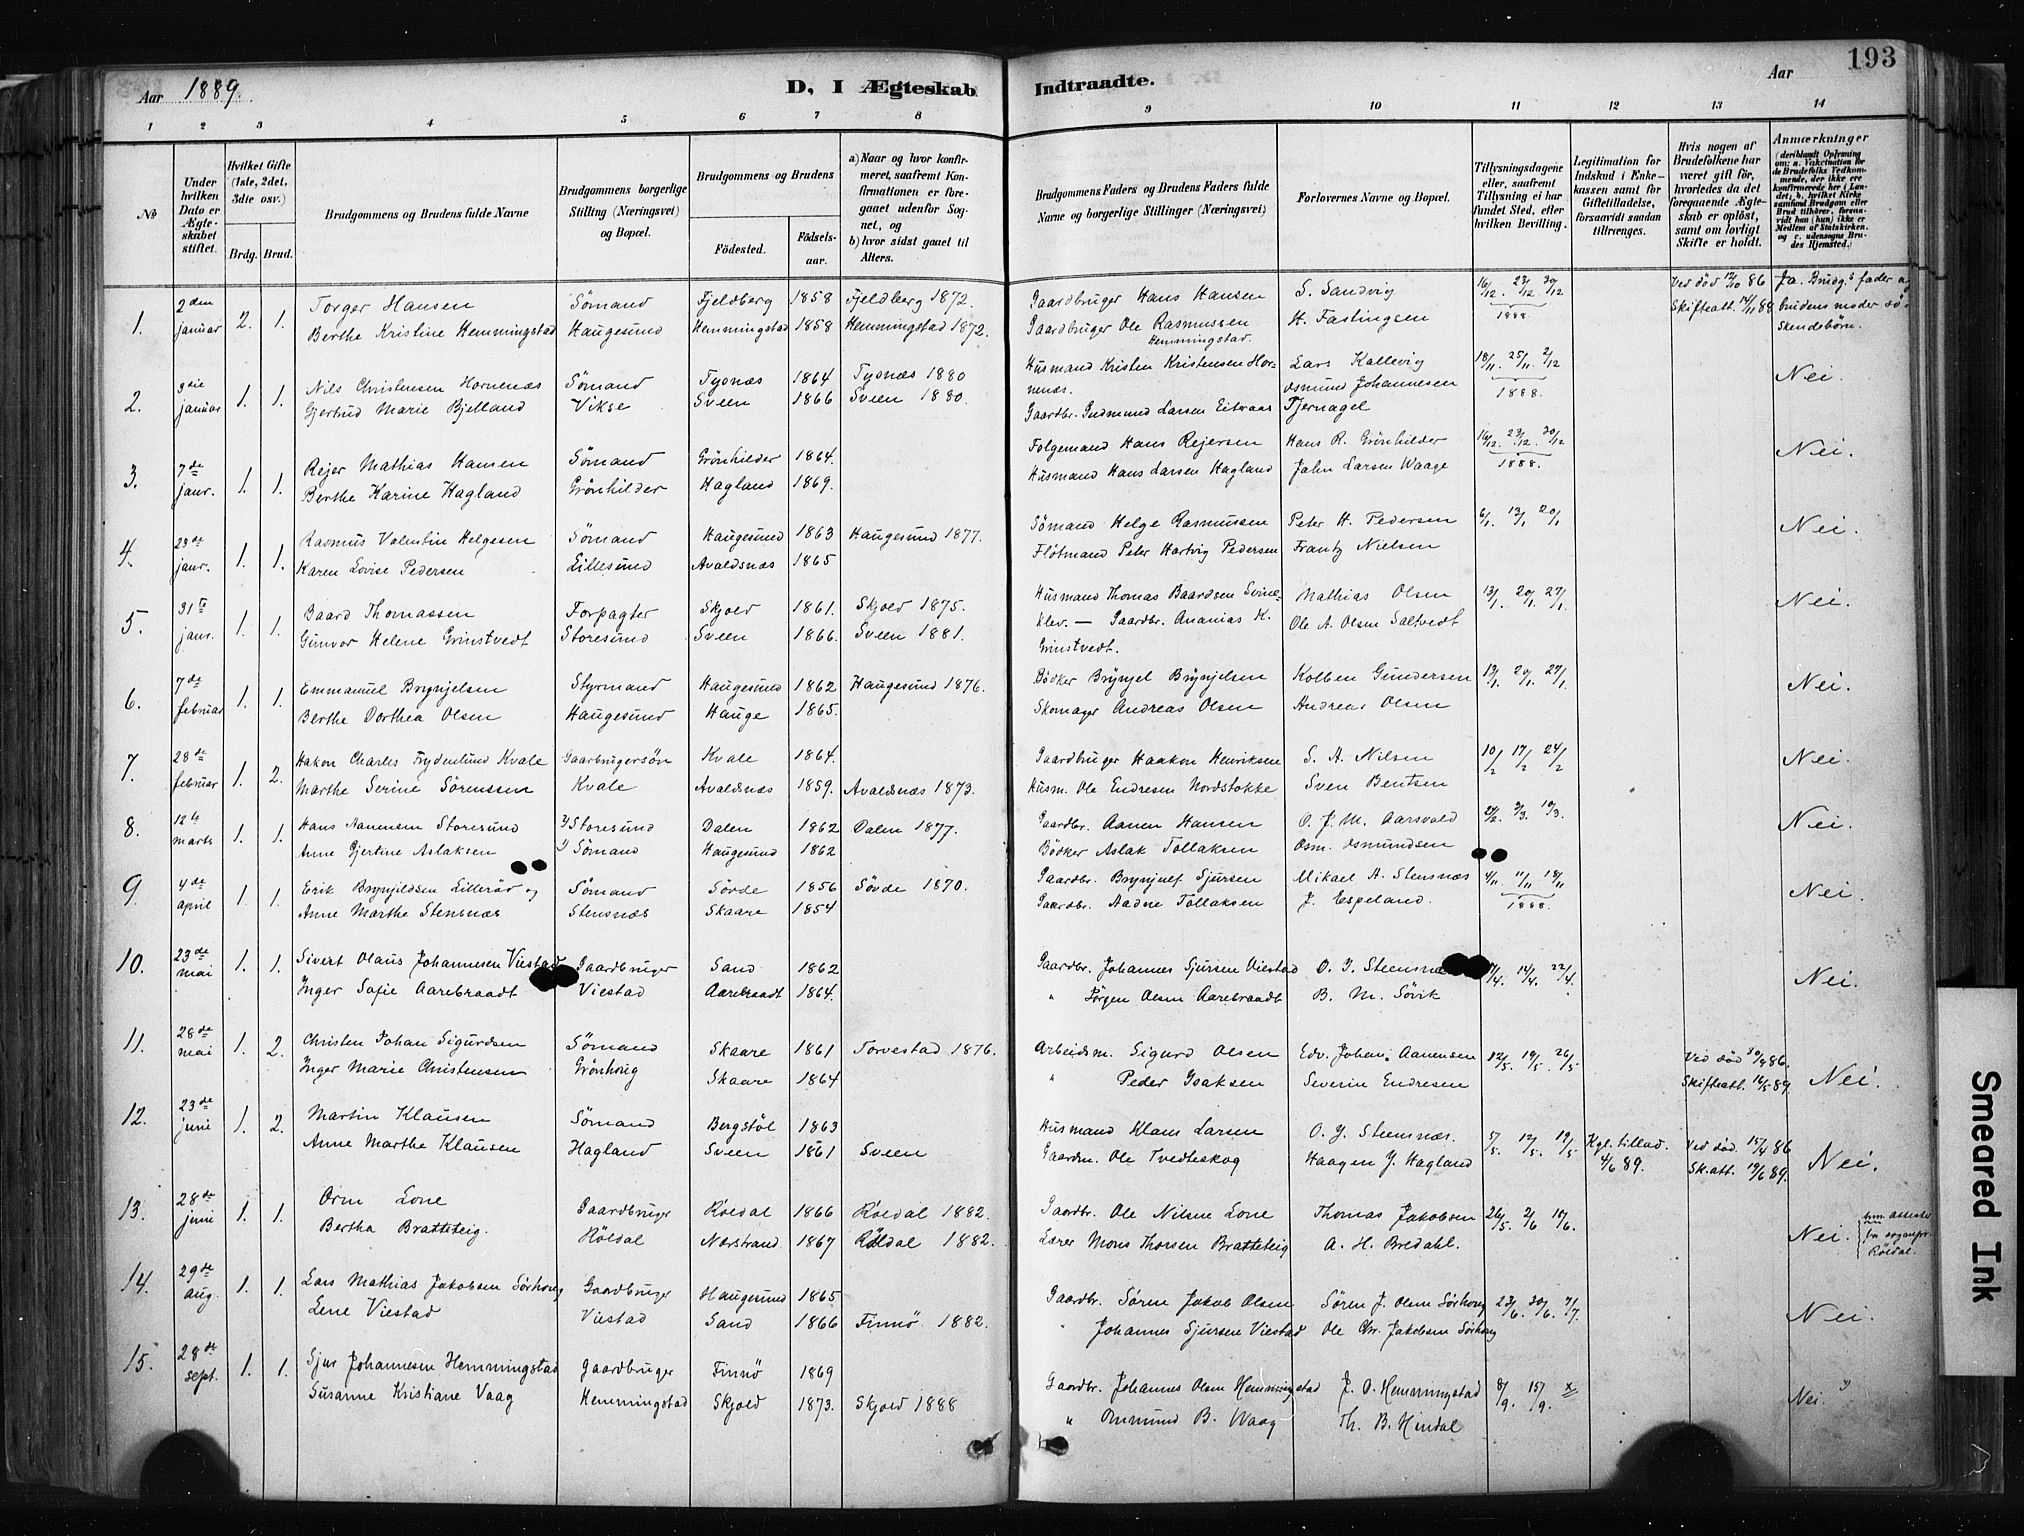 193
Aar 1889. D, I Ægteskab Indtraadte. Aar
1 2 3 4 5 6 7 8 9 10 11 12 13 14
№
Under hvilken Dato er Ægteskabet stiftet.
Hvilket Gifte (1ste, 2det, 3die osv.)
Brdg. Brud.
Brudgommens og Brudens fulde Navne
Brudgommens borgerlige Stilling (Næringsvei) og Bopæl.
Brudgommens og Brudens
Fødested. Fødselsaar.
a) Naar og hvor konfirmeret, saafremt Konfirmationen er foregaaet udenfor Sognet, og
b) hvor sidst gaaet til Alters.
Brudgommens Faders og Brudens Faders fulde Navne og borgerlige Stillinger (Næringsvei)
Forlovernes Navne og Bopæl.
Tillysningsdagene eller, saafremt Tillysning ei har fundet Sted, efter hvilken Bevilling.
Legitimation for Indskud i Enkekassen samt for Giftetilladelse, forsaavidt saadan tiltrænges.
Hvis nogen af Brudefolkene har været gift før, hvorledes da det foregaaende Ægteskab er opløst, samt om lovligt Skifte er holdt.
Anmærkninger
1. 2den januar 2. 1. Torger Hansen Sömand Fjeldberg 1858 Fjeldberg 1872. Gaardbruger Hans Hansen S. Sandvig 16/12. 23/12 30/12 Ved död 12/10 86 Ja. Brudg.s fader og
Berthe Kristine Hemmingstad Haugesund Hemmingstad 1858 Hemmingstad 1872. Gaardbruger Ole Rasmussen H. Fastingsen 1888. Skifteatt. 14/11 88. brudens moder sö-
Hemmingstad. skendebörn.
2. 3die januar 1. 1. Nils Christensen Hornenæs Sömand Tysnæs 1864 Tysnæs 1880 Husmand Kristen Kristensen Hor- Lars Kallevig 18/11. 25/11. 2/12 Nei.
Gjertrud Marie Bjelland Vikse Sveen 1866 Sveen 1880. nenæs. Osmund Johannesen 1888.
Gaardbr. Gudmund Larsen Eitraas Tjernagel
3. 7de janr. 1. 1. Rejer Mathias Hansen Sömand Grönhilder 1864. Folgemand Hans Rejersen Hans R. Grönhilder 16/12. 23/12. 30/12 Nei.
Berthe Karine Hagland Grönhilder Hagland 1869. Husmand Hans Larsen Hagland Jahn Larsen Waage 1888.
4. 23de janr. 1. 1. Rasmus Valentin Helgesen Sömand Haugesund 1863 Haugesund 1877. Sömand Helge Rasmussen Peter H. Pedersen 6/1. 13/1 20/1 Nei.
Karen Lovise Pedersen Lillesund Avaldsnæs 1865 Flötmand Peter Hartvig Pedersen Frantz Nielsen
5. 31te janr. 1. 1. Baard Thomassen Forpagter Skjold 1861. Skjold 1875. Husmand Thomas Baardsen Svine- Mathias Olsen 13/1. 20/1 27/1 Nei.
Gunvor Helene Grinstvedt Storesund Sveen 1866. Sveen 1881. klev. — Gaardbr. Ananias K. Ole A. Olsen Saltvedt
Grinstvedt.
6. 7de februar 1. 1. Emmanuel Brynjelsen Styrmand Haugesund 1862 Haugesund 1876. Bödker Brynjel Brynjelsen Kolben Gundersen 13/1. 20/1. 27/1. Nei.
Berthe Dorthea Olsen Haugesund Hauge 1865. Skomager Andreas Olsen Andreas Olsen
7. 28de februar 1. 2. Hakon Charles Frydenlund Kvale Gaarbrugersön Kvale 1864. Gaardbruger Haakon Henriksen S. A. Nilsen 10/2 17/2 24/2 Nei.
Marthe Serine Sörenssen Kvale Avaldsnæs 1859. Avaldsnæs 1873. Husm. Ole Endresen Nordstokke Sven Bentsen
8. 12te marts 1. 1. Hans Aanensen Storesund Storesund Dalen 1862 Dalen 1877. Gaardbr. Aanen Hansen O. J. M. Aarsvold 24/2. 3/3. 10/3. Nei.
Anne Gjertine Aslaksen Sömand Haugesund 1862 Bödker Aslak Tollaksen Osm. Osmundsen
9. 4de april 1. 1. Erik Brynjeldsen Lilleröd og Sömand Sövde 1856 Sövde 1870. Gaardbr. Brynjulf Sjursen Mikael A. Stensnæs 4/11 11/11 18/11 Nei.
Anne Marthe Stensnæs Stensnæs Skaare 1854 Gaardbr. Aadne Tollaksen J. Espeland. 1888.
10. 23de mai 1. 1. Sivert Olaus Johannesen Viestad Gaardbruger Sand 1862 Gaardbr. Johannes Sjursen Viestad O. J. Steensnæs 7/4. 14/4. 22/4. Nei.
Inger Sofie Aarebraadt Viestad Aarebraadt 1864. " Jörgen Olsen Aarebraadt B. M. Sövik
11. 28de mai 1. 2. Christen Johan Sigurdsen Sömand Skaare 1861 Torvestad 1876. Arbeidsm. Sigurd Olsen Edv. Johan. Aanensen 12/5. 19/5. 26/5 Ved död 30/4 86.
Inger Marie Christensen Grönhoug Skaare 1864 " Peder Isaksen Severin Endresen Skifteatt. 16/5 89. Nei.
12. 23de juni 1. 2. Martin Klausen Sömand Bergstöl 1863 Husmand Klaus Larsen O. J. Steensnæs. 5/5. 12/5. 19/5 Kgl. tillad. Ved död. 15/4 86
Anne Marthe Klausen Hagland Sveen 1861 Sveen Gaardm. Ole Tvedteskog Haagen J. Hagland 4/6 89. Sk.att. 19/6 89. Nei.
13. 28de juni 1. 1. Orm Lone Gaardbruger Röldal 1866 Röldal 1882. Gaardbr. Ole Nilsen Lone Thomas Jakobsen 26/5. 2/6 10/6.
Bertha Bratteteig. Röldal Nærstrand 1867 Röldal 1882. Lærer Mons Thorsen Bratteteig A. H. Bredahl. Nei. Röldal.
14. 29de aug. 1. 1. Lars Mathias Jakobsen Sörhoug Gaardbruger Haugesund 1865 Gaardbr. Sören Jakob Olsen Sören J. Olsen Sörhoug 23/6. 30/6. 7/7. Nei.
Lene Viestad Viestad Sand 1866 Finnö. 1882. " Johannes Sjursen Viestad Ole Chr. Jakobsen Sörhoug
15. 28de sept. 1. 1. Sjur Johannesen Hemmingstad Gaardbruger Finnö 1869 Gaardbr. Johannes Olsen Hemmingstad J. O. Hemmingstad 8/9. 15/9. Nei.
Susanne Kristiane Vaag Hemmingstad Skjold 1873. Skjold 1888 " Omund B. Waag Th. B. Hindal
Smeared Ink